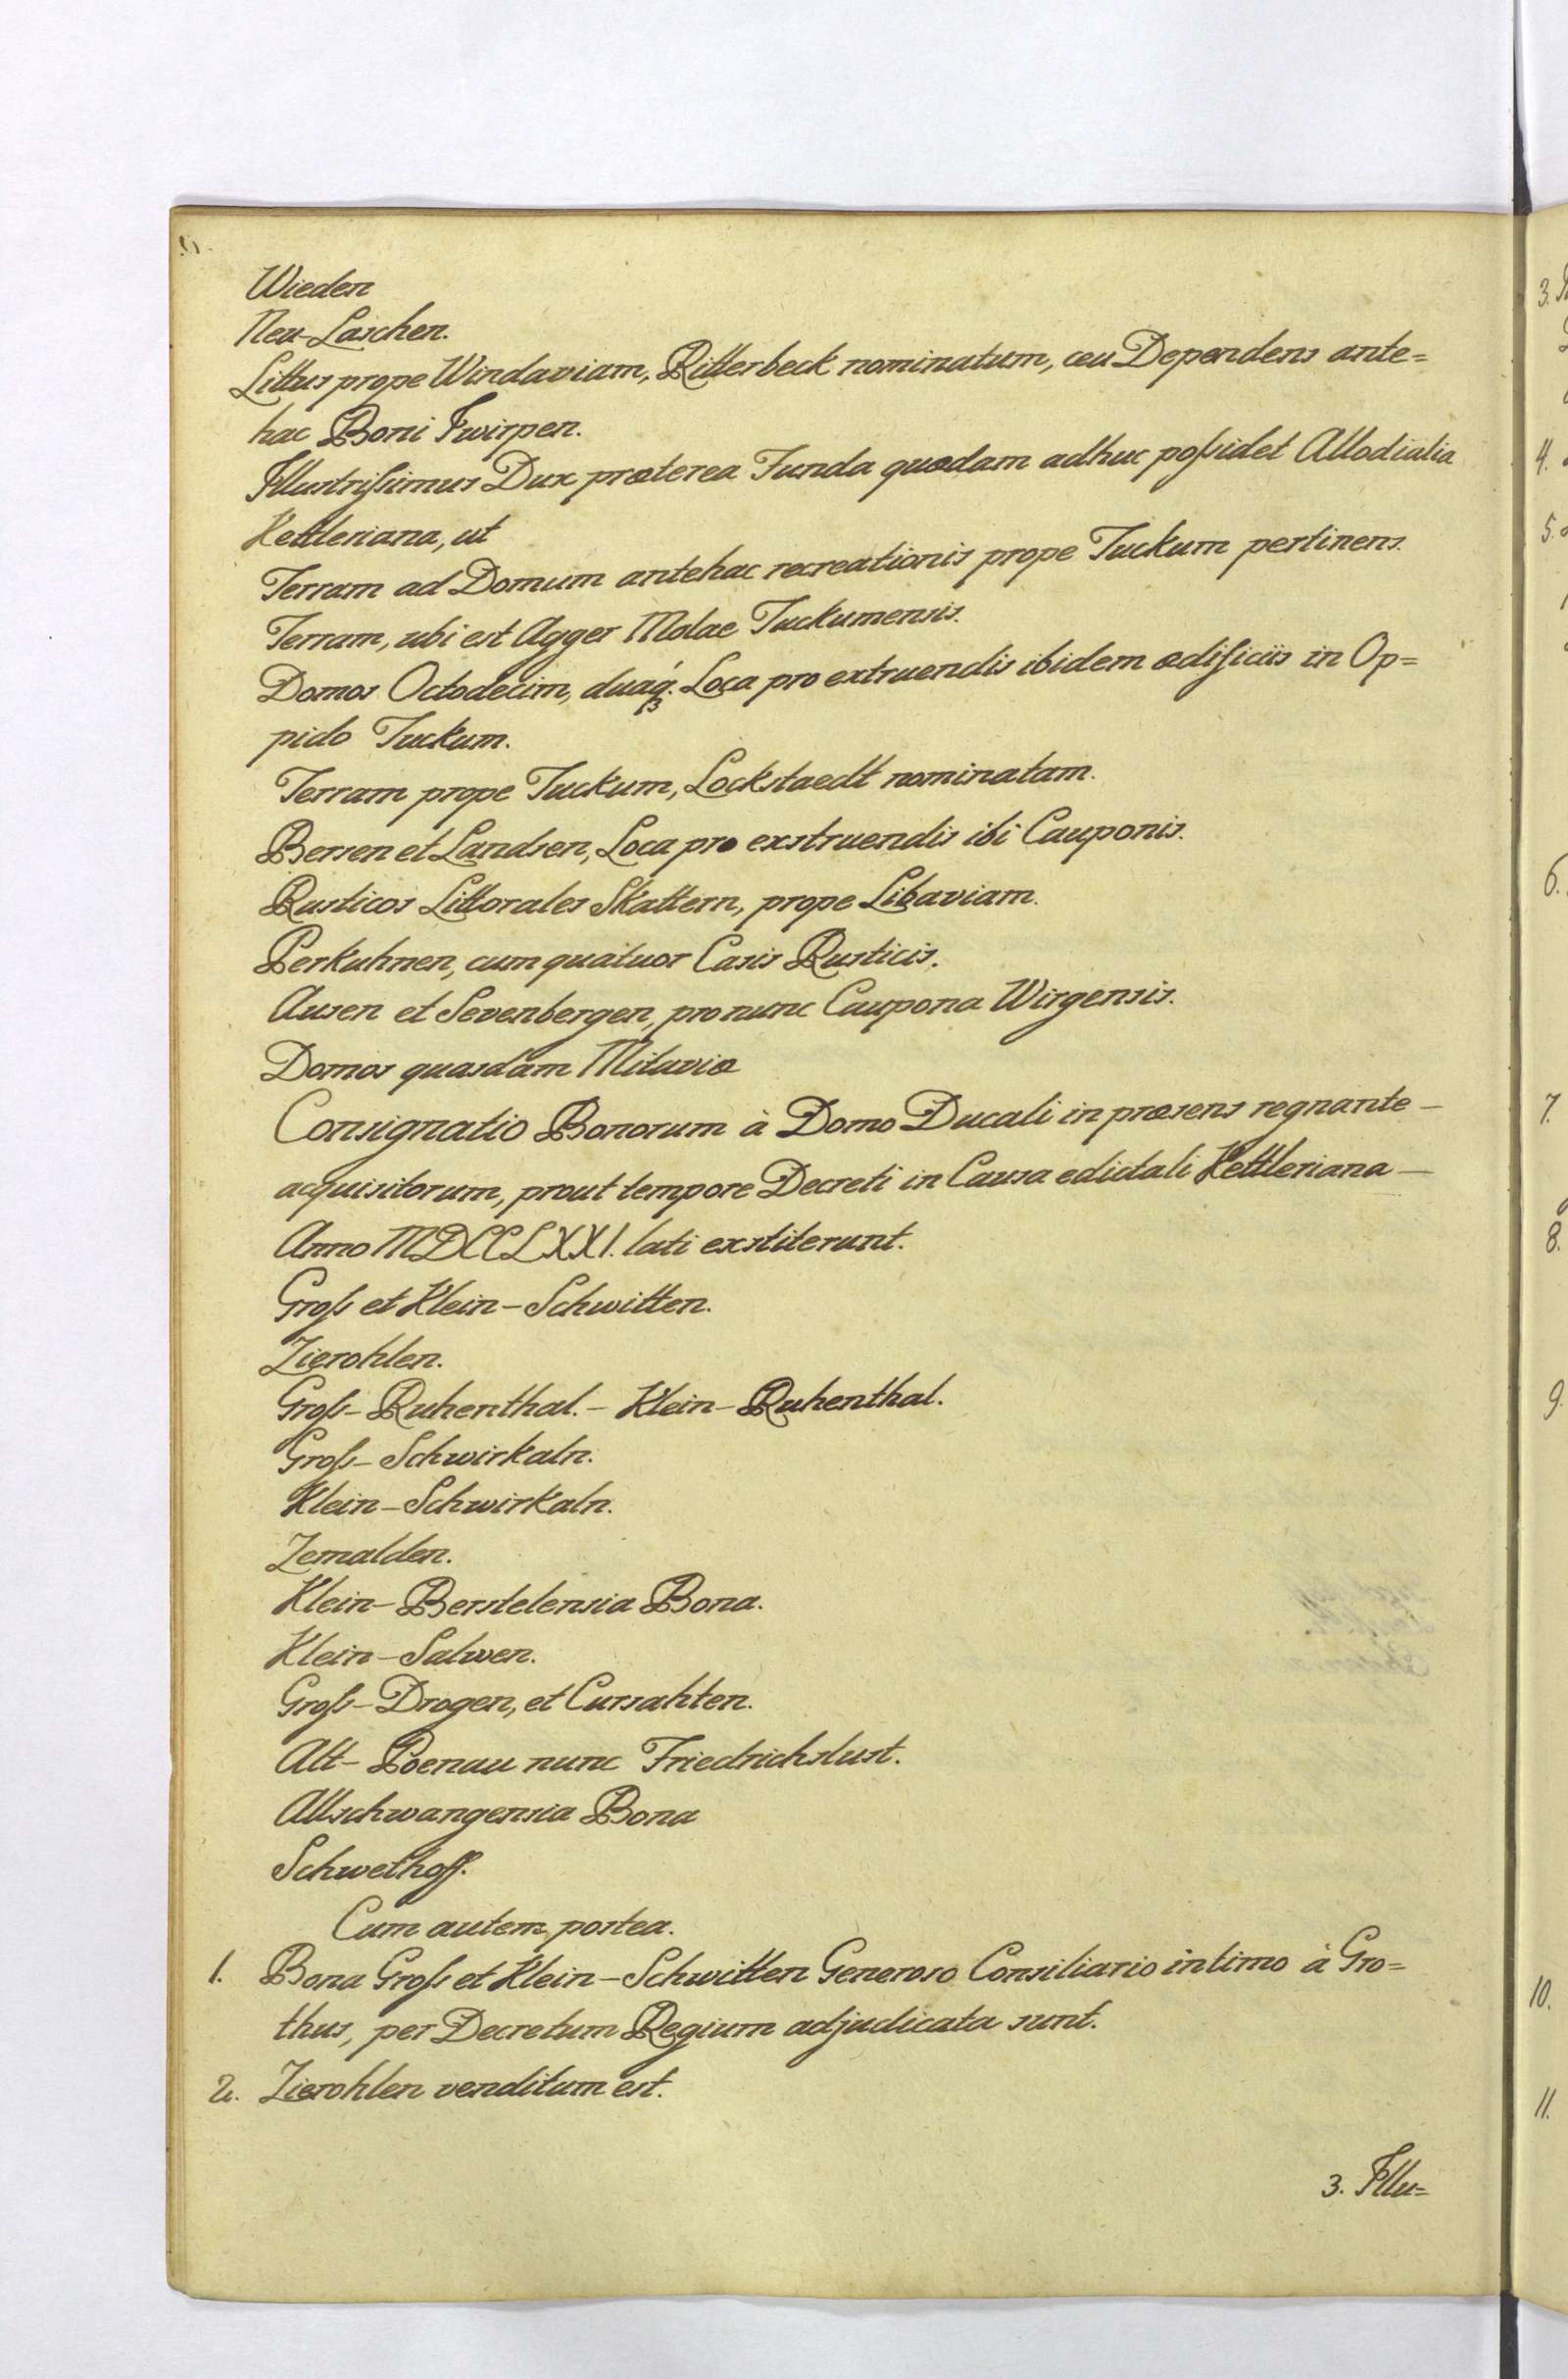 Wieden
Neu-Laschen.
Littus prope Windaviam, Ritterbeck nominatum, ceu Dependens ante=
hac Boni Iwirpen.
Illustrissimus Dux præterea Funda quædam adhuc possidet Allodialia
Kettleriana, ut
Terram ad Domum antehac recreationis prope Tuckum pertinens.
Terram, ubi est Agger Molae Tuckumensis.
Domos Octodecim, duaq́ꝫ. Loca pro extruendis ibidem ædificiis in Op=
pido Tuckum.
Terram prope Tuckum, Lockstaedt nominatam.
Bersen et Landsen, Loca pro exstruendis ibi Cauponis.
Rusticos Littorales Skattern, prope Libaviam.
Perkuhnen, cum quatuor Casis Rusticis.
Ausen et Sevenbergen, pro nunc Caupona Wirgensis.
Domos quasdam Mitaviæ
Consignatio Bonorum à Domo Ducali in præsens regnante –
acquisitorum, prout tempore Decreti in Causa edictali Kettleriana –
Anno MDCCLXXI. lati exstiterunt.
Groß et Klein-Schwitten.
Zierohlen.
Groß-Ruhenthal. - Klein-Ruhenthal.
Groß-Schwirkaln.
Klein-Schwirkaln.
Zemalden.
Klein-Berstelensia Bona.
Klein-Salwen.
Groß-Drogen, et Cursahten.
Alt-Poenau nunc Friedrichslust.
Allschwangensia Bona
Schwethoff.
Cum autem postea.
1. Bona Groß et Klein-Schwitten Generoso Consiliario intimo à Gro=
thus, per Decretum Regium adjudicata sunt.
2. Zierohlen venditum est.
3. Illu=
3.
4.
5.
6.
7.
8.
9.
10.
11.